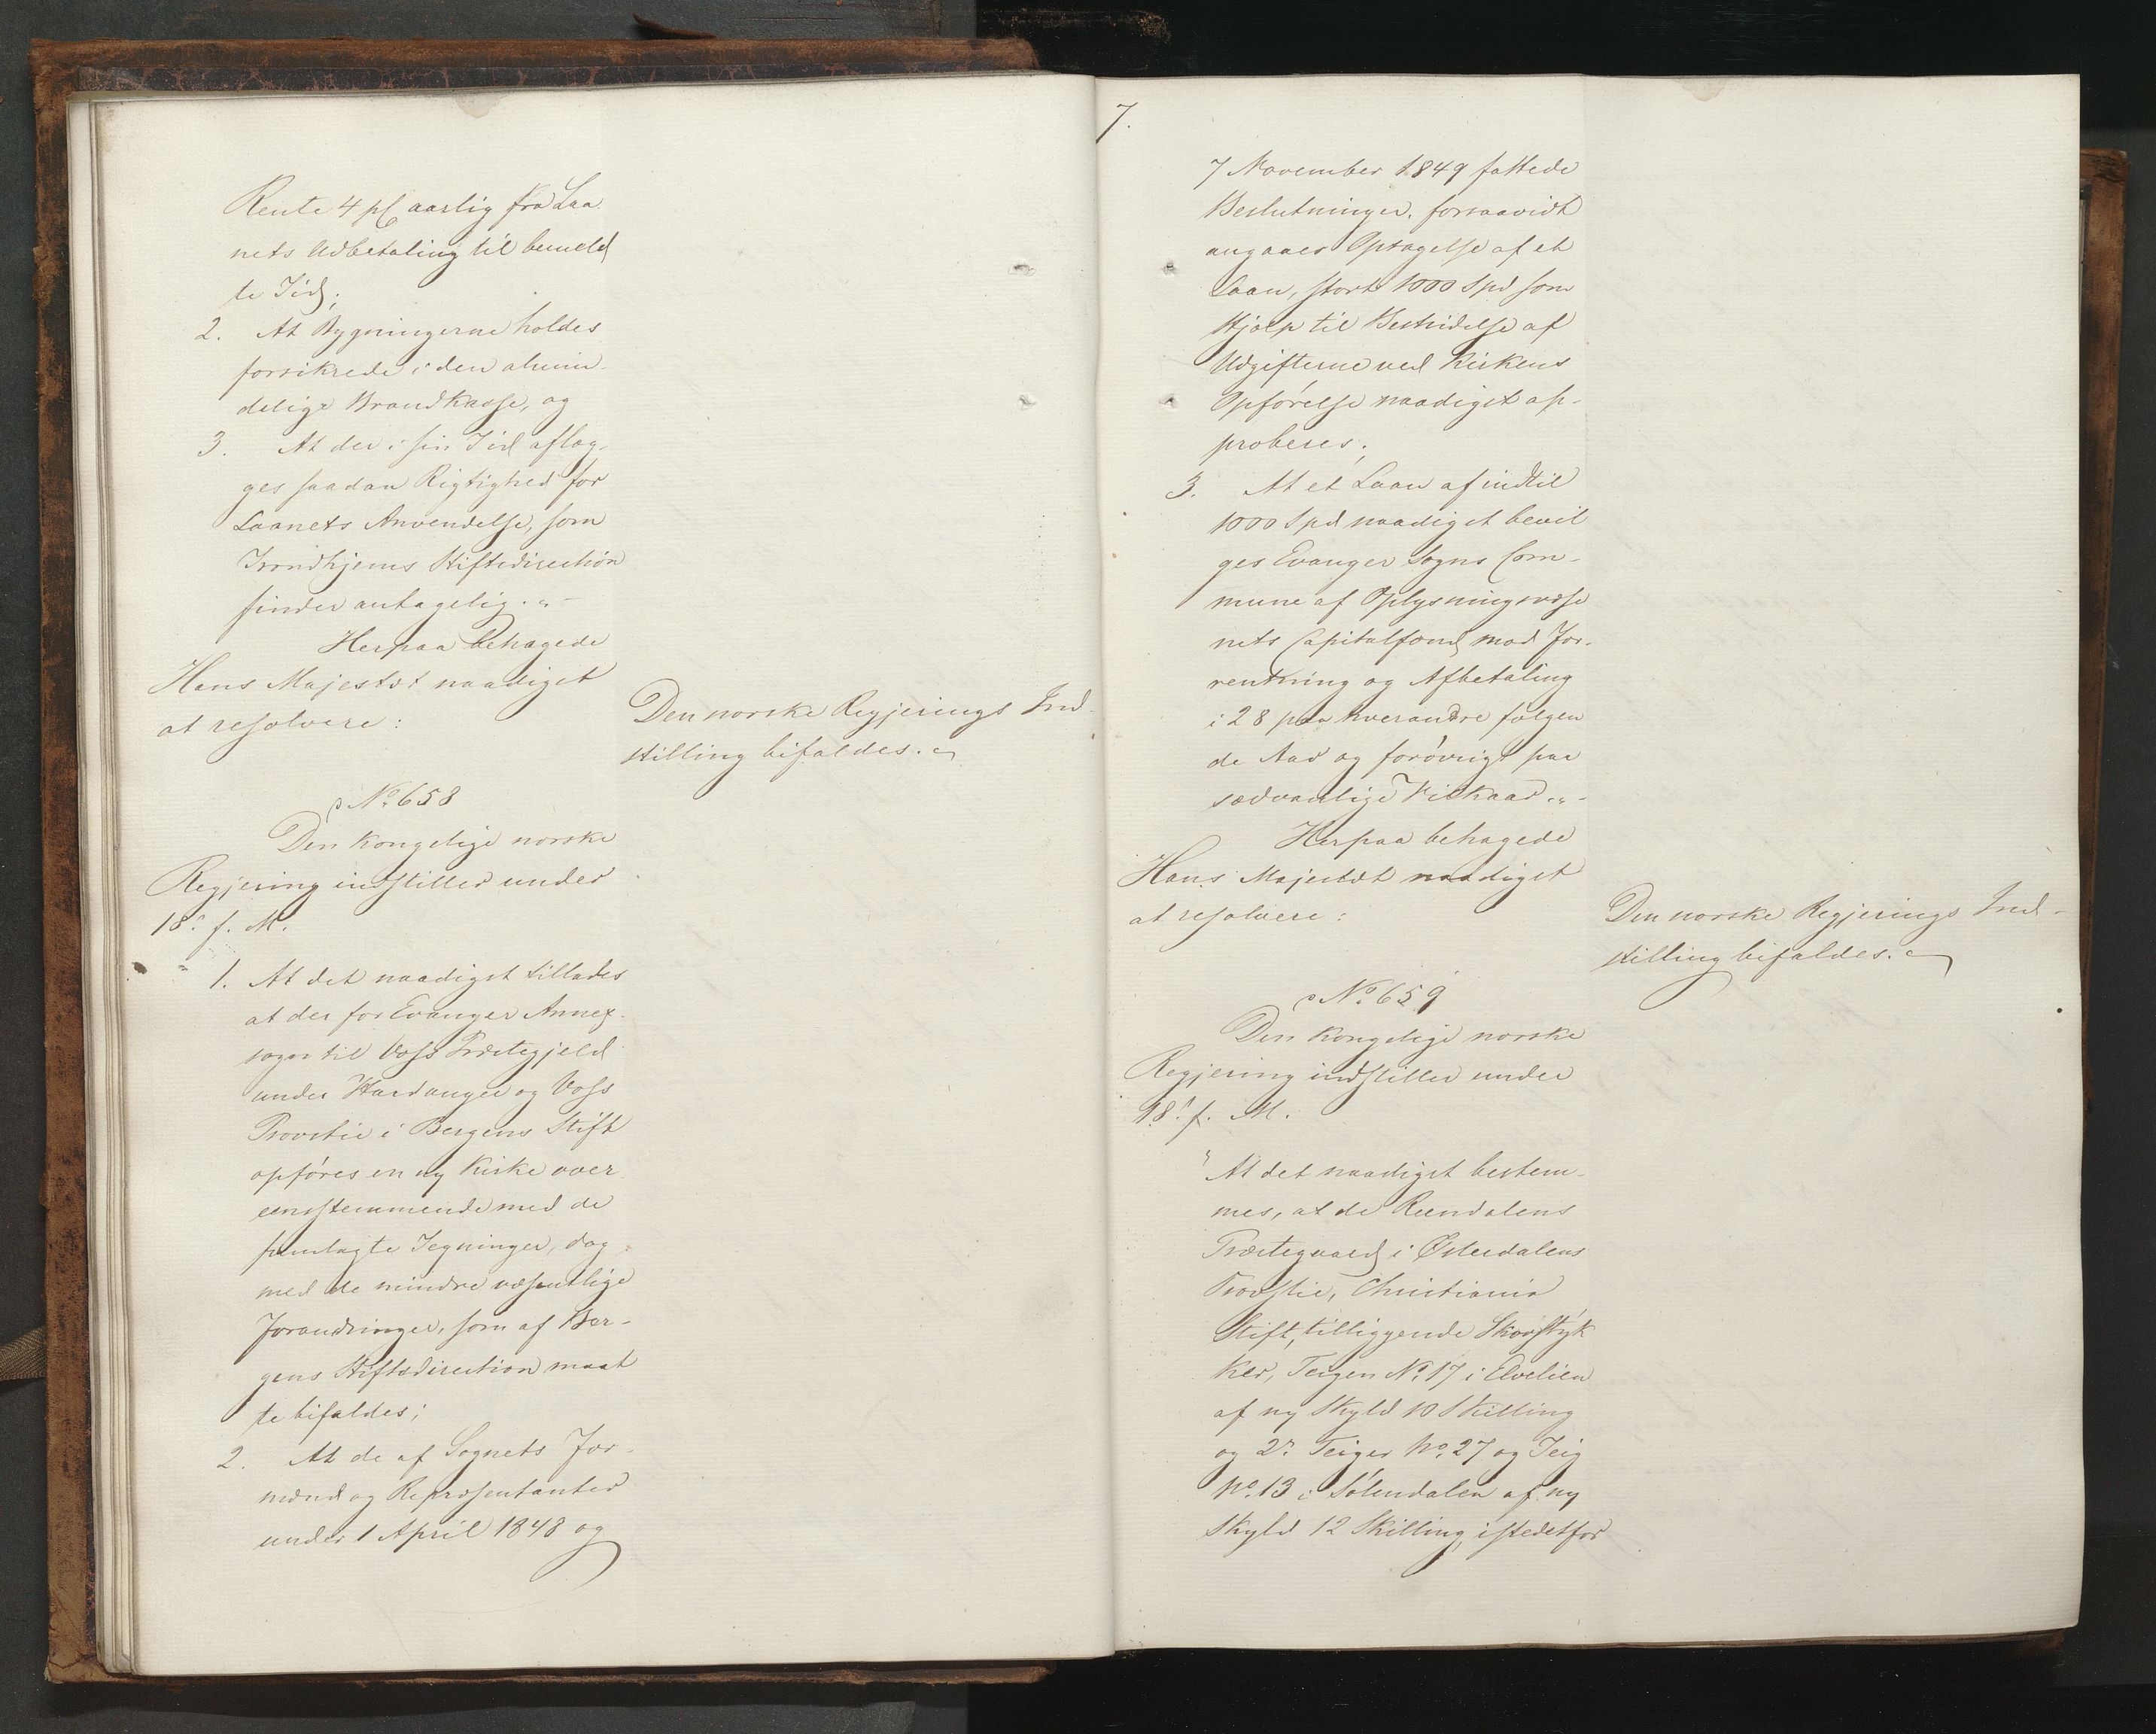 Rente 4 pC aarlig fra Laa
nets Udbetaling til bemeld
te Tid;
2. At Bygningerne holdes
forsikrede i den almin-
delige Brandkasse, og
3. At der i sin Tid aflæg-
ges saadan Rigtighed for
Laanets Anvendelse, som
Trondhjems Stiftsdirection
finder antagelig.„-
Herpaa behagede
Hans Majestæt naadigst
at resolvere:
Den norske Regjerings Ind-
stilling bifaldes.
No. 658
Den kongelige norske
Regjering indstiller under
18. f. M.
„1. At det naadigst tillades
at der for Evanger Annex-
sogn til Voss Præstegjeld
under Hardanger og Voss
Provstie i Bergens Stift
opføres en ny Kirke over
eensstemmende med de
fremlagte Tegninger, dog
med de mindre væsentlige
Forandringer, som af Ber-
gens Stiftsdirection maat
te bifaldes;
2. At de af Sognets For-
mænd og Repræsentanter
under 1 April 1848 og
7.
7 November 1849 fattede
Beslutninger, forsaavidt
angaaer Optagelse af et
Laan, stort 1000 Spd som
Hjælp til Bestridelse af
Udgifterne ved Kirkens
Opførelse naadigst ap-
proberes;
3. At et Laan af indtil
1000 Spd naadigst bevil
ges Evanger Sogns Com-
mune af Oplysningsvæse
nets Capitalfond mod For-
rentning og Afbetaling
i 28 paa hverandre følgen
de Aar og forøvrigt paa
sædvanlige Vilkaar.„-
Herpaa behagede
Hans Majestæt naadigst
at resolvere:
Den norske Regjerings Ind-
stilling bifaldes.
No. 659
Den kongelige norske
Regjering indstiller under
18. f. M.
„At det naadigst bestem-
mes, at de Rendalens
Præstegaard i Østerdalens
Provstie, Christiania
Stift, tilliggende Skovstyk
ker, Teigen No. 17 i Elvelien
af ny Skyld 10 Skilling
og 2de Teiger No. 27 og Teig
No. 13 i Sølendalen af ny
Skyld 12 Skilling, istedetfor